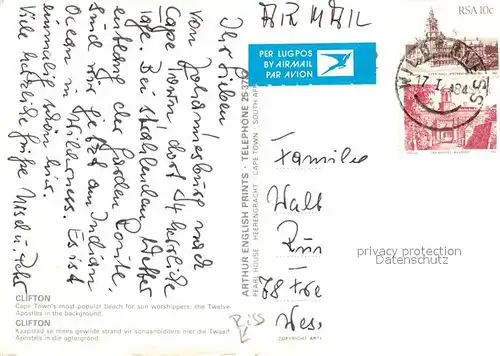 AIR MAIL
RSA 10c
PER LUGPOS
BY AIRMAIL
PAR AVION
WILDERNESS
17. I. 84
Ihr Lieben
von Johannesburg nach
Cape Town, dort 14 herrliche
Tage. Bei strahlendem Wetter
entlang der Garden Route,
sind wir jetzt am Indian
Ocean in Wilderness. Es ist
einmalig schön hier.
Viele herzliche Grüße
ARTHUR ENGLISH PRINTS · TELEPHONE
PEARL HOUSE HEERENGRACHT CAPE TOWN SOUTH AFR
Familie
Walt
78 Fre
Wes
privacy protection
Datenschutz
Riss
CLIFTON
Cape Town's most popular beach for sun worshippers: the Twelve
Apostles in the background.
CLIFTON
Kaapstad se mees gewilde strand vir sonaanbidders met die Twaalf
Apostels in die agtergrond.
COPYRIGHT